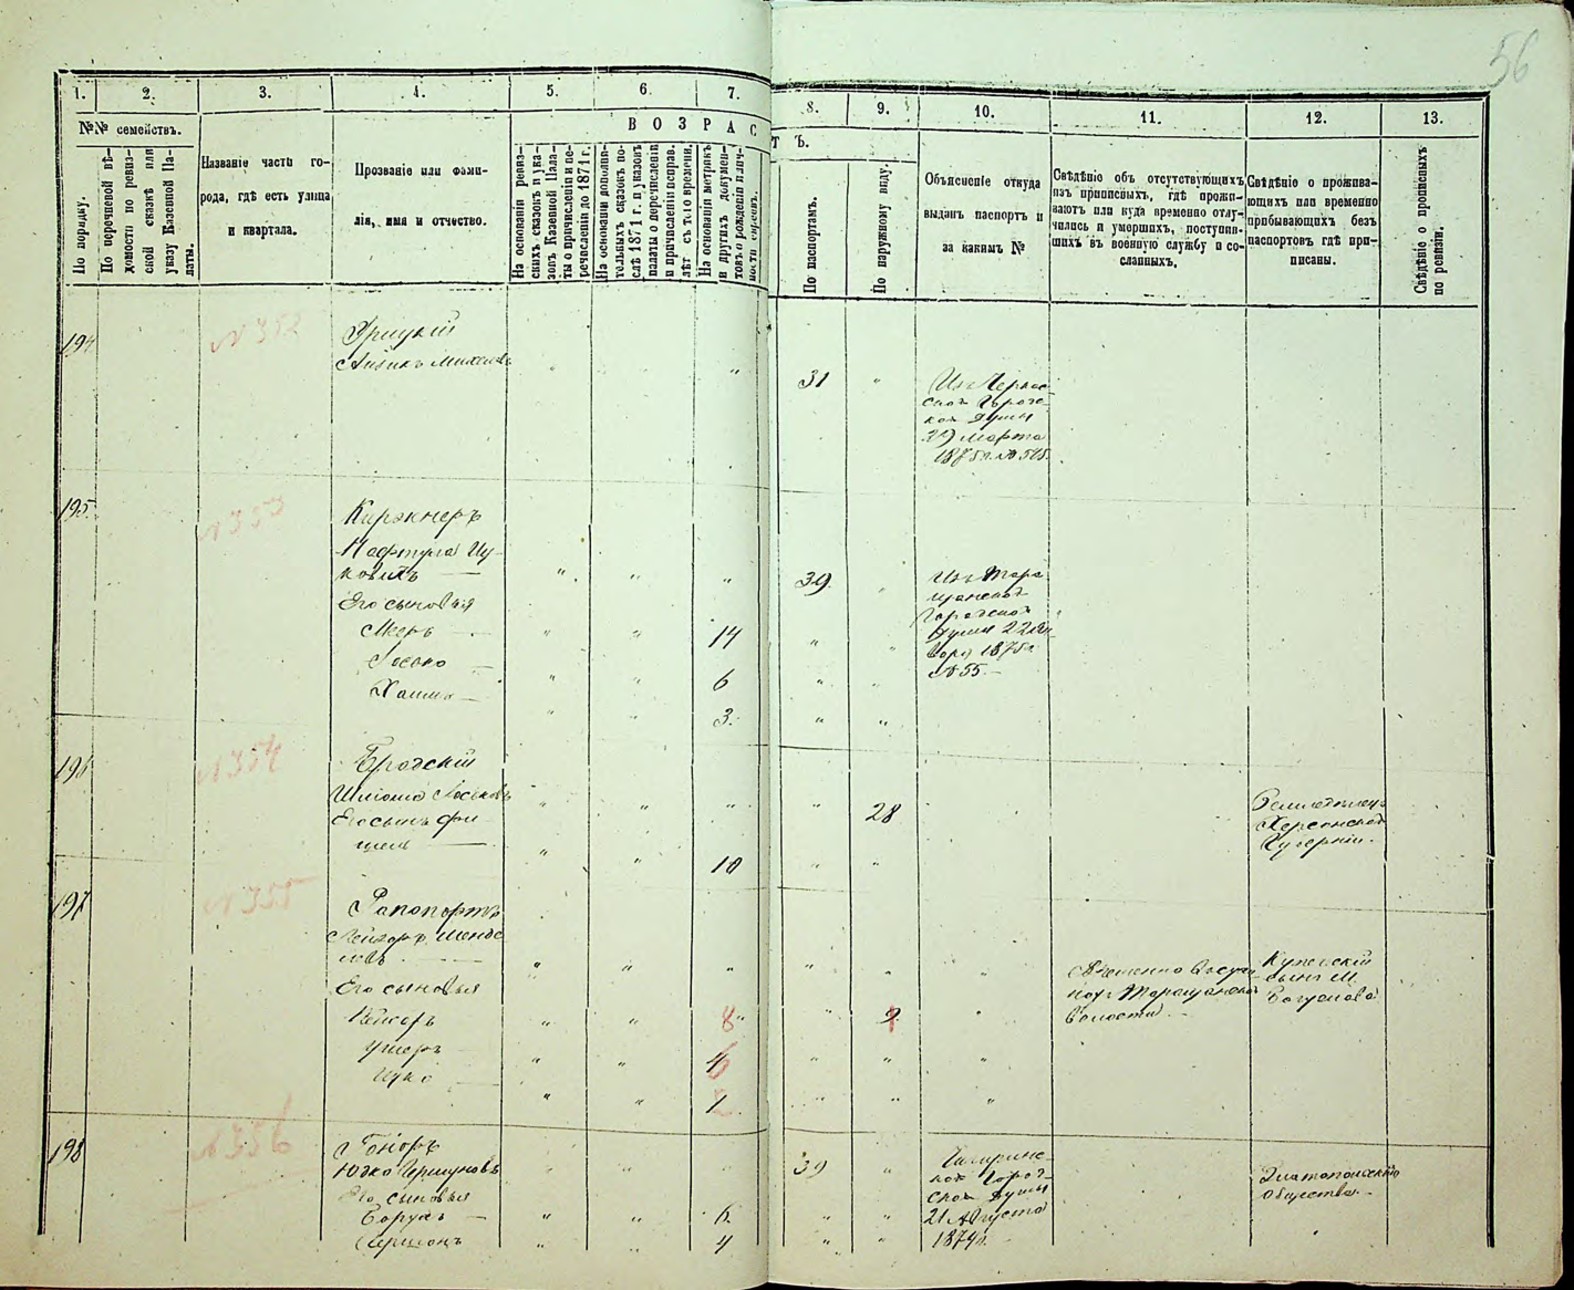 56
1.
2.
3.
4.
5.
6.
7.
8.
9.
10.
11.
12.
13.
№№ семействъ.
По порядку.
По перечневой вѣ-
домости по ревиз-
ской сказкѣ или
указу Казенной Па-
латы.
Названіе части го-
рода, гдѣ есть улица
и квартала.
Прозваніе или фами-
лія, имя и отчество.
ВОЗРАСТЪ.
На основаніи ревиз-
скихъ сказокъ и ука-
зовъ Казенной Пала-
ты о причисленіи и пе-
речисленіи до 1871 г.
На основаніи дополни-
тельныхъ сказокъ по-
слѣ 1871 г. и указовъ
палаты о перечисленіи
и причисленіи исправ.
лѣт съ того времени.
На основаніи метрикъ
и другихъ докумен-
товъ о рожденіи
По паспортамъ.
По наружному виду.
Объясненіе откуда
выданъ паспортъ и
за какимъ №
Свѣдѣніе об отсутствующихъ
изъ приписныхъ, гдѣ прожи-
ваютъ или куда временно отлу-
чились и умершихъ, поступив-
шихъ въ военную службу и со-
сланныхъ.
Свѣдѣніе о прожива-
ющихъ или временно
прибывающихъ безъ
паспортовъ гдѣ при-
писаны.
Свѣдѣніе о прописныхъ
по ревизіи.
194
№ 352
Грицкій
Айзикъ
31
Изъ Черкас-
ской Городс-
кой Думы
29 марта
1875 г. № 515.
195.
№ 353
Киржнеръ
Нафтула Иц-
ковичъ
39
Изъ Тара-
щанской
Городской
Думы 22 Ян-
варя 1875 г.
№ 55.
Его сыновья
Меер 14
Іосько 6
Хаимъ 3.
196
№ 354
Бродскій
Шліома Іоськовъ
28
Херсонской
Губерніи.
Его сынъ Фи-
шель 10
197
№ 355
Рапопортъ
Лейзоръ Менде-
левъ
Таращанской
волости.
Богуслава
Его сыновья
8 9
Ушеръ 4
Ицко 1
198
№ 356
Гоноръ
Юдко Гершуновъ
39
Чигиринс-
кой Город-
ской Думы
21 Августа
1874 г.
Златопольскаго
общества.
Его сыновья
Борухъ 6.
Гершонъ 4